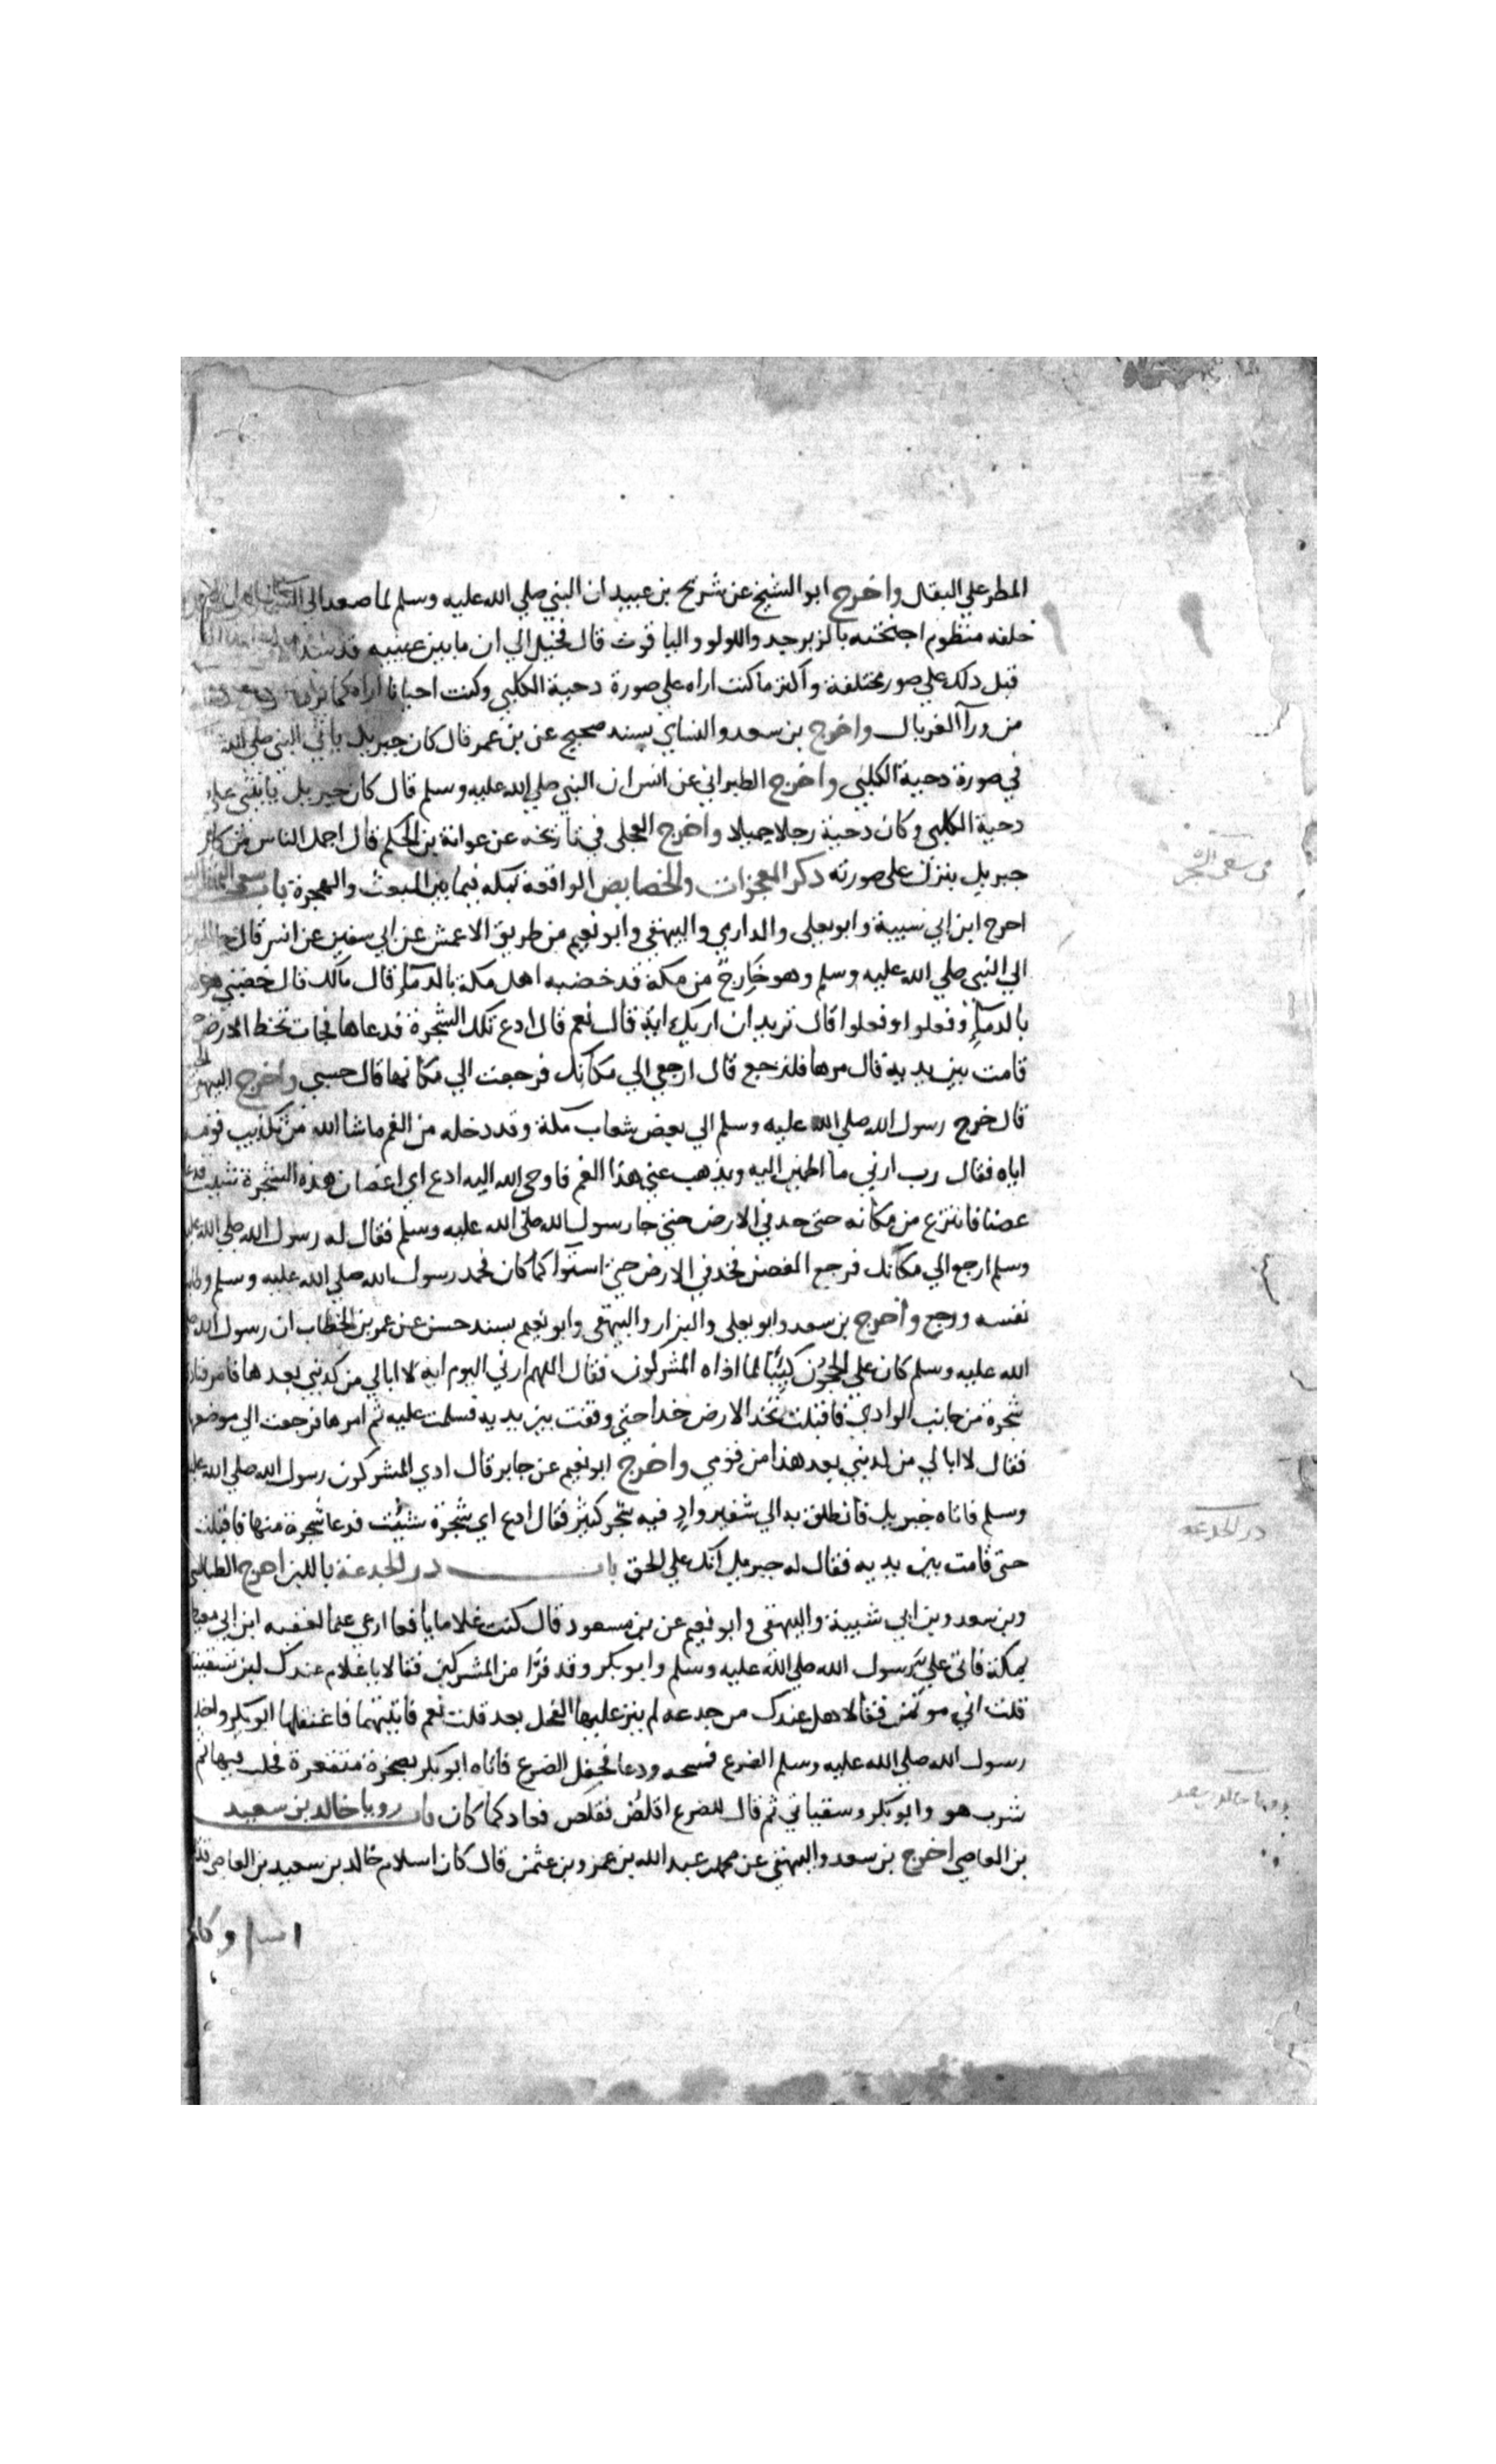 المطر علي البقال واخرج ابو الشيخ عن شريح بن عبيد ان النبي صلي الله عليه وسلم لما صعد الي
خلقه منظوم اجنحته بالزبرجد واللولو والياقوت قال فخيل الي ان ما بين عينيه قد سد
قبل دلك علي صور مختلفة واكثر ما كنت اراه علي صورة دحية الكلبي وكنت احيانا اراه كما
من ورآ الغربال واخرج بن سعد والنساي بسند صحيح عن بن عمر قال كان جبريل ياتي النبي صلي الله
في صورة دحية الكلبي واخرج الطبراني عن انس ان النبي صلي الله عليه وسلم قال كان جبريل ياتيني علي
دحية الكلبي وكان دحية رجلا جميلا واخرج العجلي في تاريخه عن عوانة بن الحكم قال اجمل الناس من كان
جبريل ينزل علي صورته ذكر المعجزات والخصايص الواقعة بمكه فيما بين المبعث والهجرة باب
اخرج ابن ابي شيبة وابو يعلي والدارمي والبيهقي وابو نعيم من طريق الاعمش عن ابي سفين عن انس قال جا
الي النبي صلي الله عليه وسلم وهو خارج من مكة قد خضبه اهل مكة بالدمآ قال مالك قال خضبني هولا
بالدمآ وفعلوا وفعلوا قال تريد ان اريك اية قال نعم قال ادع تلك الشجرة فدعاها فجات تخط الارض حتي
قامت بين يديه قال مرها فلترجع قال ارجعي الي مكانك فرجعت الي مكانها قال حسبي واخرج البيهقي
قال خرج رسول الله صلي الله عليه وسلم الي بعض شعاب مكة وقد دخله من الغم ماشا الله من تكذيب قومه
اياه فقال رب ارني ما اطمين اليه ويذهب عني هذا الغم فاوحي الله اليه ادع اي اغصان هذه الشجرة شيت فدعا
غصنا فانتزع من مكانه حتي خد في الارض حتي جا رسول الله صلي الله عليه وسلم فقال له رسول الله صلي الله عليه
وسلم ارجع الي مكانك فرجع الغصن فخد في الارض حتي استوا كما كان فحمد رسول الله صلي الله عليه وسلم وطابت
نفسه ورجع واخرج بن سعد وابو يعلي والبزار والبيهقي وابو نعيم بسند حسن عن عمر بن الخطاب ان رسول الله صلي
الله عليه وسلم كان علي الحجون كئيبا لما اذاه المشركون فقال اللهم ارني اليوم اية لا ابالي من كذبني بعدها فامر فنادي
شجرة من جانب الوادي فاقبلت تخد الارض خدا حتي وقفت بين يديه فسلمت عليه ثم امرها فرجعت الي موضعها
فقال لا ابالي من كذبني بعد هذا من قومي واخرج ابو نعيم عن جابر قال اذي المشركون رسول الله صلي الله عليه
وسلم فاتاه جبريل فانطلق به الي شفير واد فيه شجر كثير فقال ادع اي شجرة شئت فدعا شجرة منها فاقبلت
حتي قامت بين يديه فقال له جبريل انك علي الحق باب در الجدعة باللبن اخرج الطيالسي
وبن سعد وبن ابي شيبة والبيهقي وابو نعيم عن بن مسعود قال كنت غلاما يافعا ارعي غنما لعقبه ابن ابي معيط
بمكة فاتي علي رسول الله صلي الله عليه وسلم وابو بكر وقد فرا من المشركين فقالا يا غلام عندك لبن تسقينا
قلت اني موتمن فقالا هل عندك من جدعه لم ينز عليها الفحل بعد قلت نعم فاتيتهما فاعتقلها ابو بكر واخذ
رسول الله صلي الله عليه وسلم الضرع فمسحه ودعا فحفل الضرع فاتاه ابو بكر بصخرة منقعرة فحلب فيها ثم
شرب هو وابو بكر وسقياني ثم قال للضرع اقلص فقلص فعاد كما كان باب رويا خالد بن سعيد
بن العاصي اخرج بن سعد والبيهقي عن محمد عبد الله بن عمرو بن عثمن قال كان اسلام خالد بن سعيد بن العاصي قديما
وكان
در الجدعه
رويا خالد بن سعيد